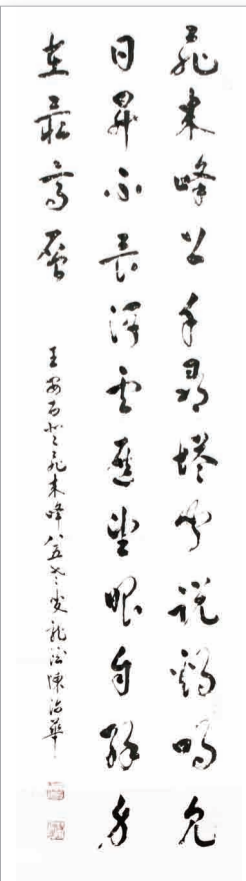 飛来峰上千尋塔聞説鷄鳴見
日昇不畏浮雲遮望眼自緣身
在最高層
王安石登飛来峰八五老叟龍陳華